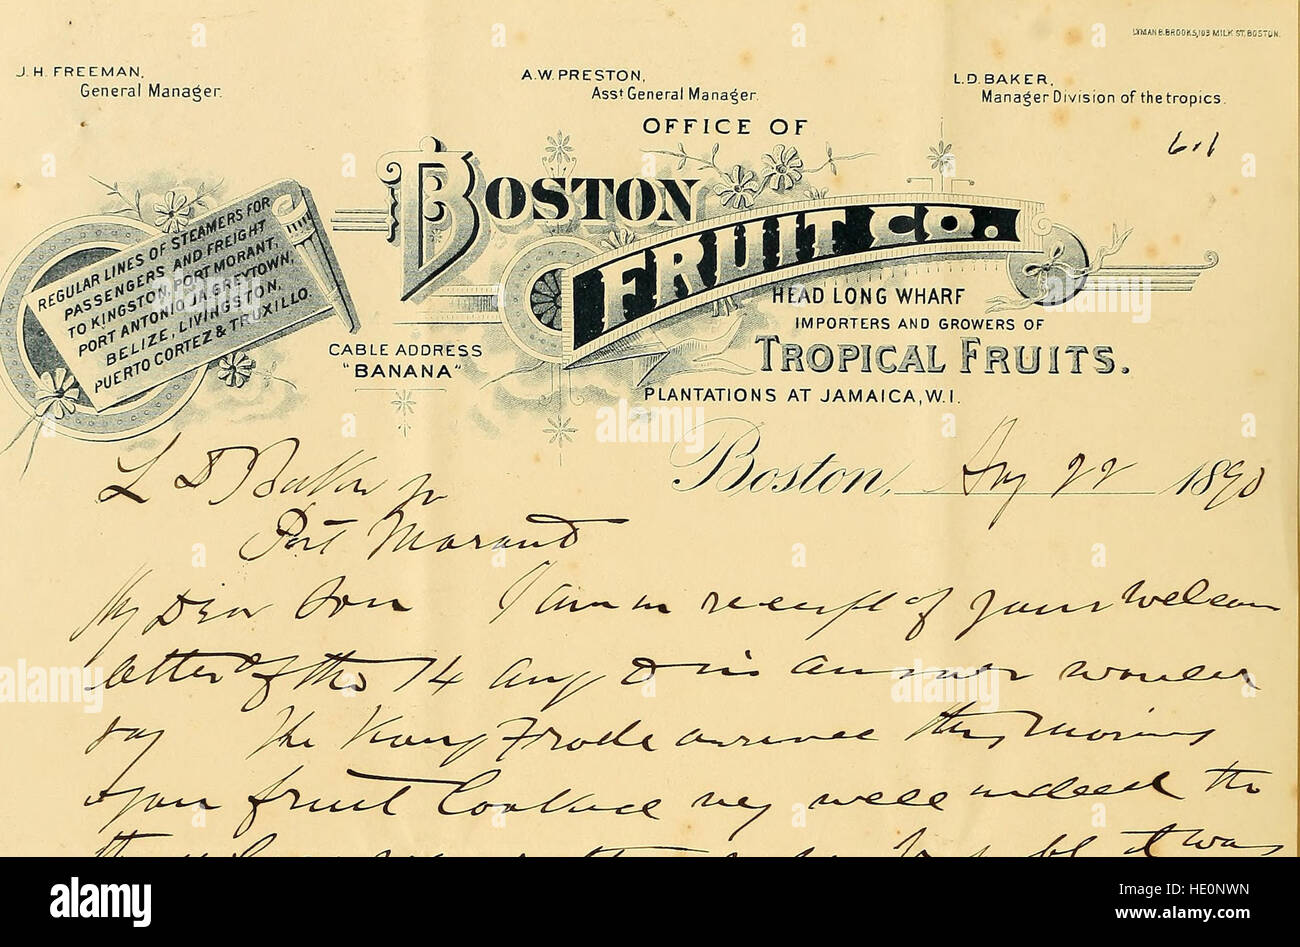 LYMAN B. BROOKS, 103 MILK ST. BOSTON.
J. H. FREEMAN,
General Manager.
A. W. PRESTON,
Asst General Manager.
L. D. BAKER,
Manager Division of the tropics.
6.1
OFFICE OF
BOSTON
FRUIT CO.
REGULAR LINES OF STEAMERS FOR
PASSENGERS AND FREIGHT
TO KINGSTON, PORT MORANT,
PORT ANTONIO JA. GREYTOWN,
BELIZE, LIVINGSTON,
PUERTO CORTEZ & TRUXILLO.
CABLE ADDRESS
"BANANA"
HEAD LONG WHARF
IMPORTERS AND GROWERS OF
TROPICAL FRUITS.
PLANTATIONS AT JAMAICA, W.I.
Boston, Aug 22 1890
L D Baker Jr
Port Morant
My Dear Son I am in receipt of yours welcom
letter of the 14 Aug & in answer would
say The arrived this morning
your fruit looked very well indeed the
it was
alamy
Image ID: HE0NWN
www.alamy.com